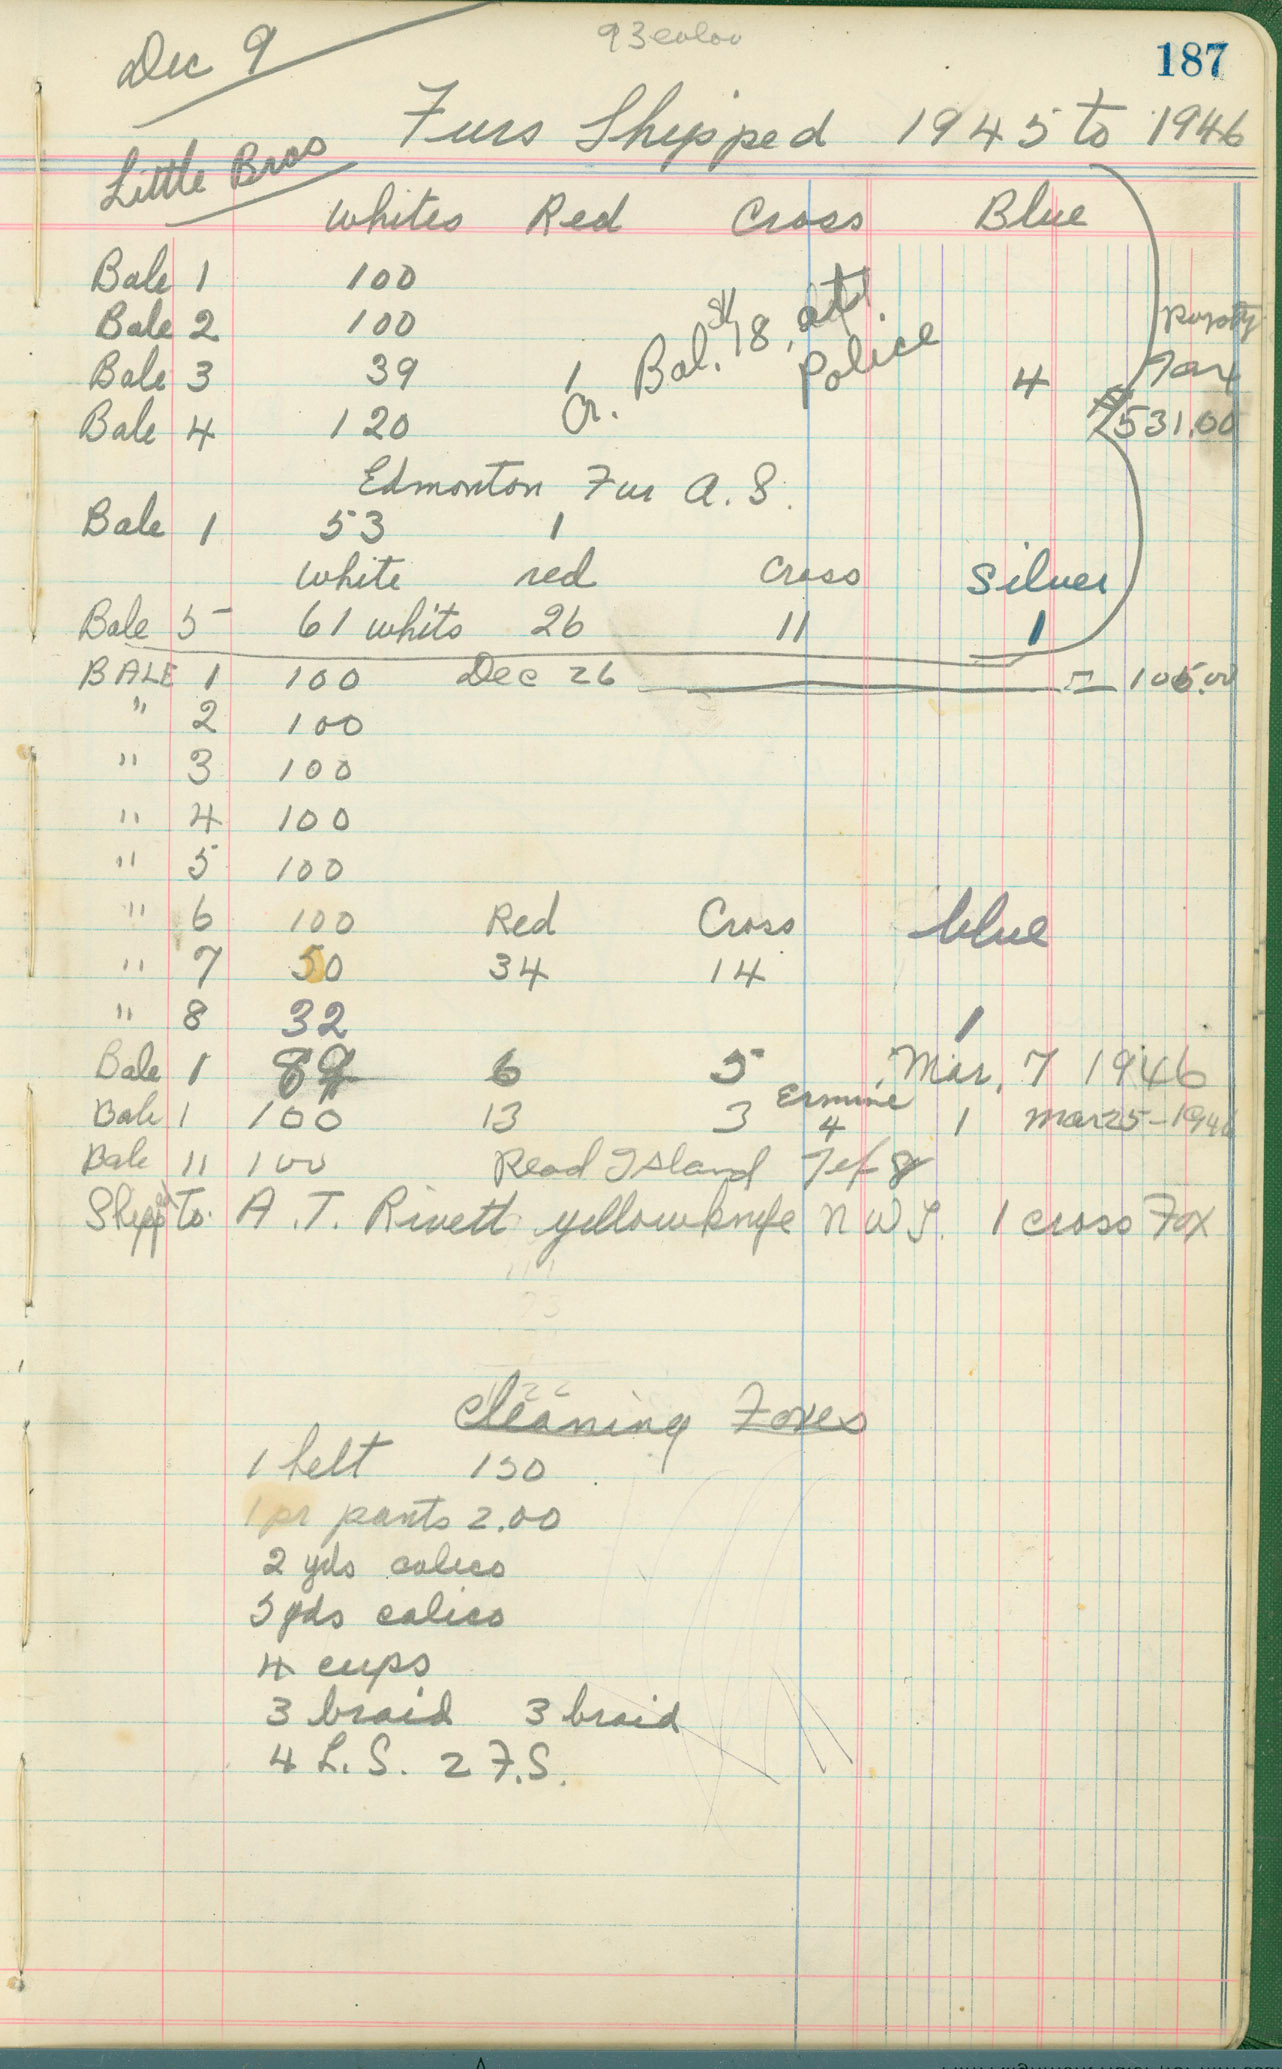 Dec 9
187
Furs Shipped 1945 to 1946
Little Bros
Whites Red Cross Blue
Bale 1 100
Bale 2 100
Bale 3 39 1 4
Cr. Bal. 18. at Police
Royalty Tax
$531.00
Bale 4 120
Edmonton Fur A. S.
Bale 1 53 1
White red Cross Silver
Bale 5 61 whits 26 11 1
BALE 1 100 Dec 26 = 105.00
" 2 100
" 3 100
" 4 100
" 5 100
" 6 100 Red Cross blue
" 7 50 34 14
" 8 32 1
Bale 1 89 6 5 Mar. 7 1946
Bale 1 100 13 3 Ermine 4 1 Mar 25-1946
Bale 11 100 Read Island
Shipped to. A. T. Rivett yellowknife N W T. 1 cross Fox
Cleaning Foxes
1 belt 150
1 pr pants 2.00
2 yds calico
5 yds calico
4 cups
3 braid 3 braid
4 L. S. 2 F. S.